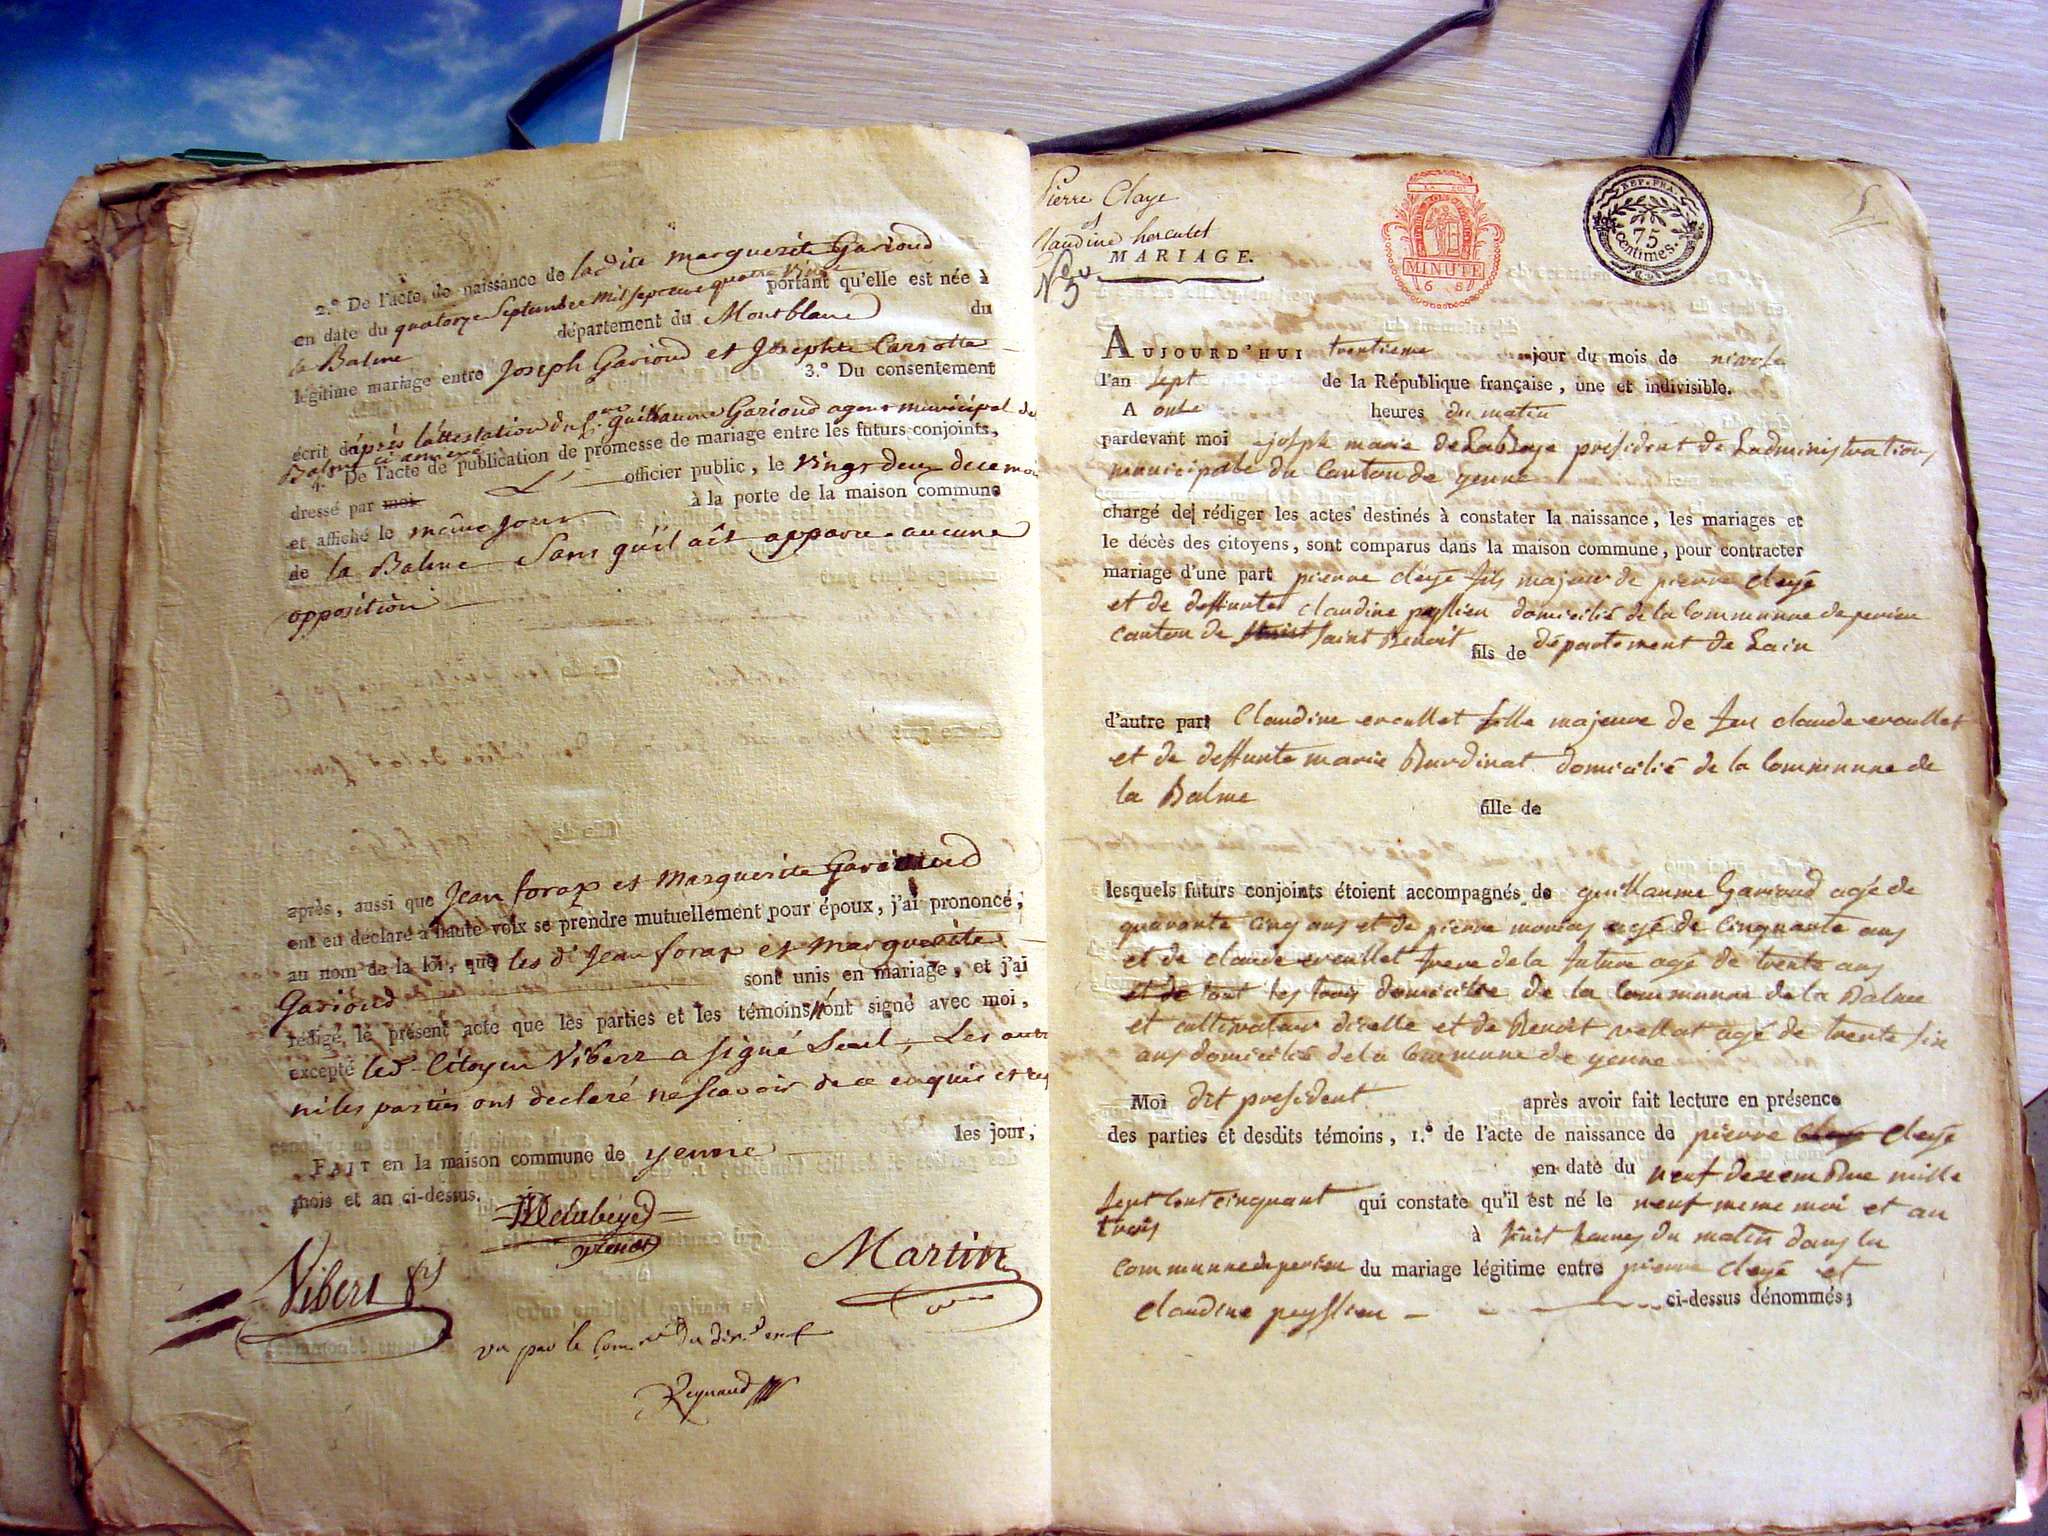 2.° De l'acte de naissance de ladite marguerite Garioud
en date du quatorze Septembre mil sept cent quatre vingt
portant qu'elle est née à
la Balme département du Montblanc du
légitime mariage entre Joseph Garioud et Josephte Carrotte
3.° Du consentement
écrit d'après l'attestation du guillaume Garioud agent municipal de
Balme ci annexé
4.° De l'acte de publication de promesse de mariage entre les futurs conjoints,
dressé par moi L' officier public, le vingt deux
et affiché le même jour à la porte de la maison commune
de la Balme Sans qu'il ait apparu aucune
opposition
après, aussi que Jean forax et Marguerite Garioud
ont eu déclaré à haute voix se prendre mutuellement pour époux, j'ai prononcé,
au nom de la loi, que les d Jean forax et Marguerite
Garioud sont unis en mariage, et j'ai
rédigé le présent acte que les parties et les témoins ont signé avec moi,
excepté led. Citoyen Vibert a signé Seul, Les autr
ni les parties ont declaré ne scavoir de ce enquis et
FAIT en la maison commune de yenne les jour,
mois et an ci-dessus.
Delabeye
président
Vibert fils
Martin
vu par le
Reynaud
Pierre Claye
et
Claudine herculet
MARIAGE.
N° 5
LA LOI
MINUTE
REP. FRA.
75
centimes.
AUJOURD'HUI trentieme jour du mois de nivose
l'an sept de la République française, une et indivisible.
A onze heures du matin
pardevant moi joseph marie delabeye président de Ladministration
municipale du Canton de yenne
chargé de rédiger les actes destinés à constater la naissance, les mariages et
le décès des citoyens, sont comparus dans la maison commune, pour contracter
mariage d'une part pierre cleyé fils majeur de pierre cleyé
et de deffunte claudine peysslieu domicilié de la Commune de perieu
canton de saint Benoit fils de département de Lain
d'autre part Claudine eroullet fille majeure de feu claude eroullet
et de deffunte marie Burdinat domicilié de la Commune de
la Balme fille de
lesquels futurs conjoints étoient accompagnés de guillaume Garioud agé de
quarante cinq ans et de pierre agé de cinquante ans
et de claude eroullet frere de la future agé de trente ans
et de tout les trois domicilié de la Commune de la Balme
et cultivateur dicelle et de Benoit vellat agé de trente six
ans domicilié de la Commune de yenne
Moi dit president après avoir fait lecture en présence
des parties et desdits témoins, 1.° de l'acte de naissance de pierre cleyé
en date du neuf decembre mille
sept cent cinquant qui constate qu'il est né le neuf meme moi et an
trois à huit heures du matin dans la
commune de perieu du mariage légitime entre pierre cleyé et
claudine peysslieu ci-dessus dénommés;